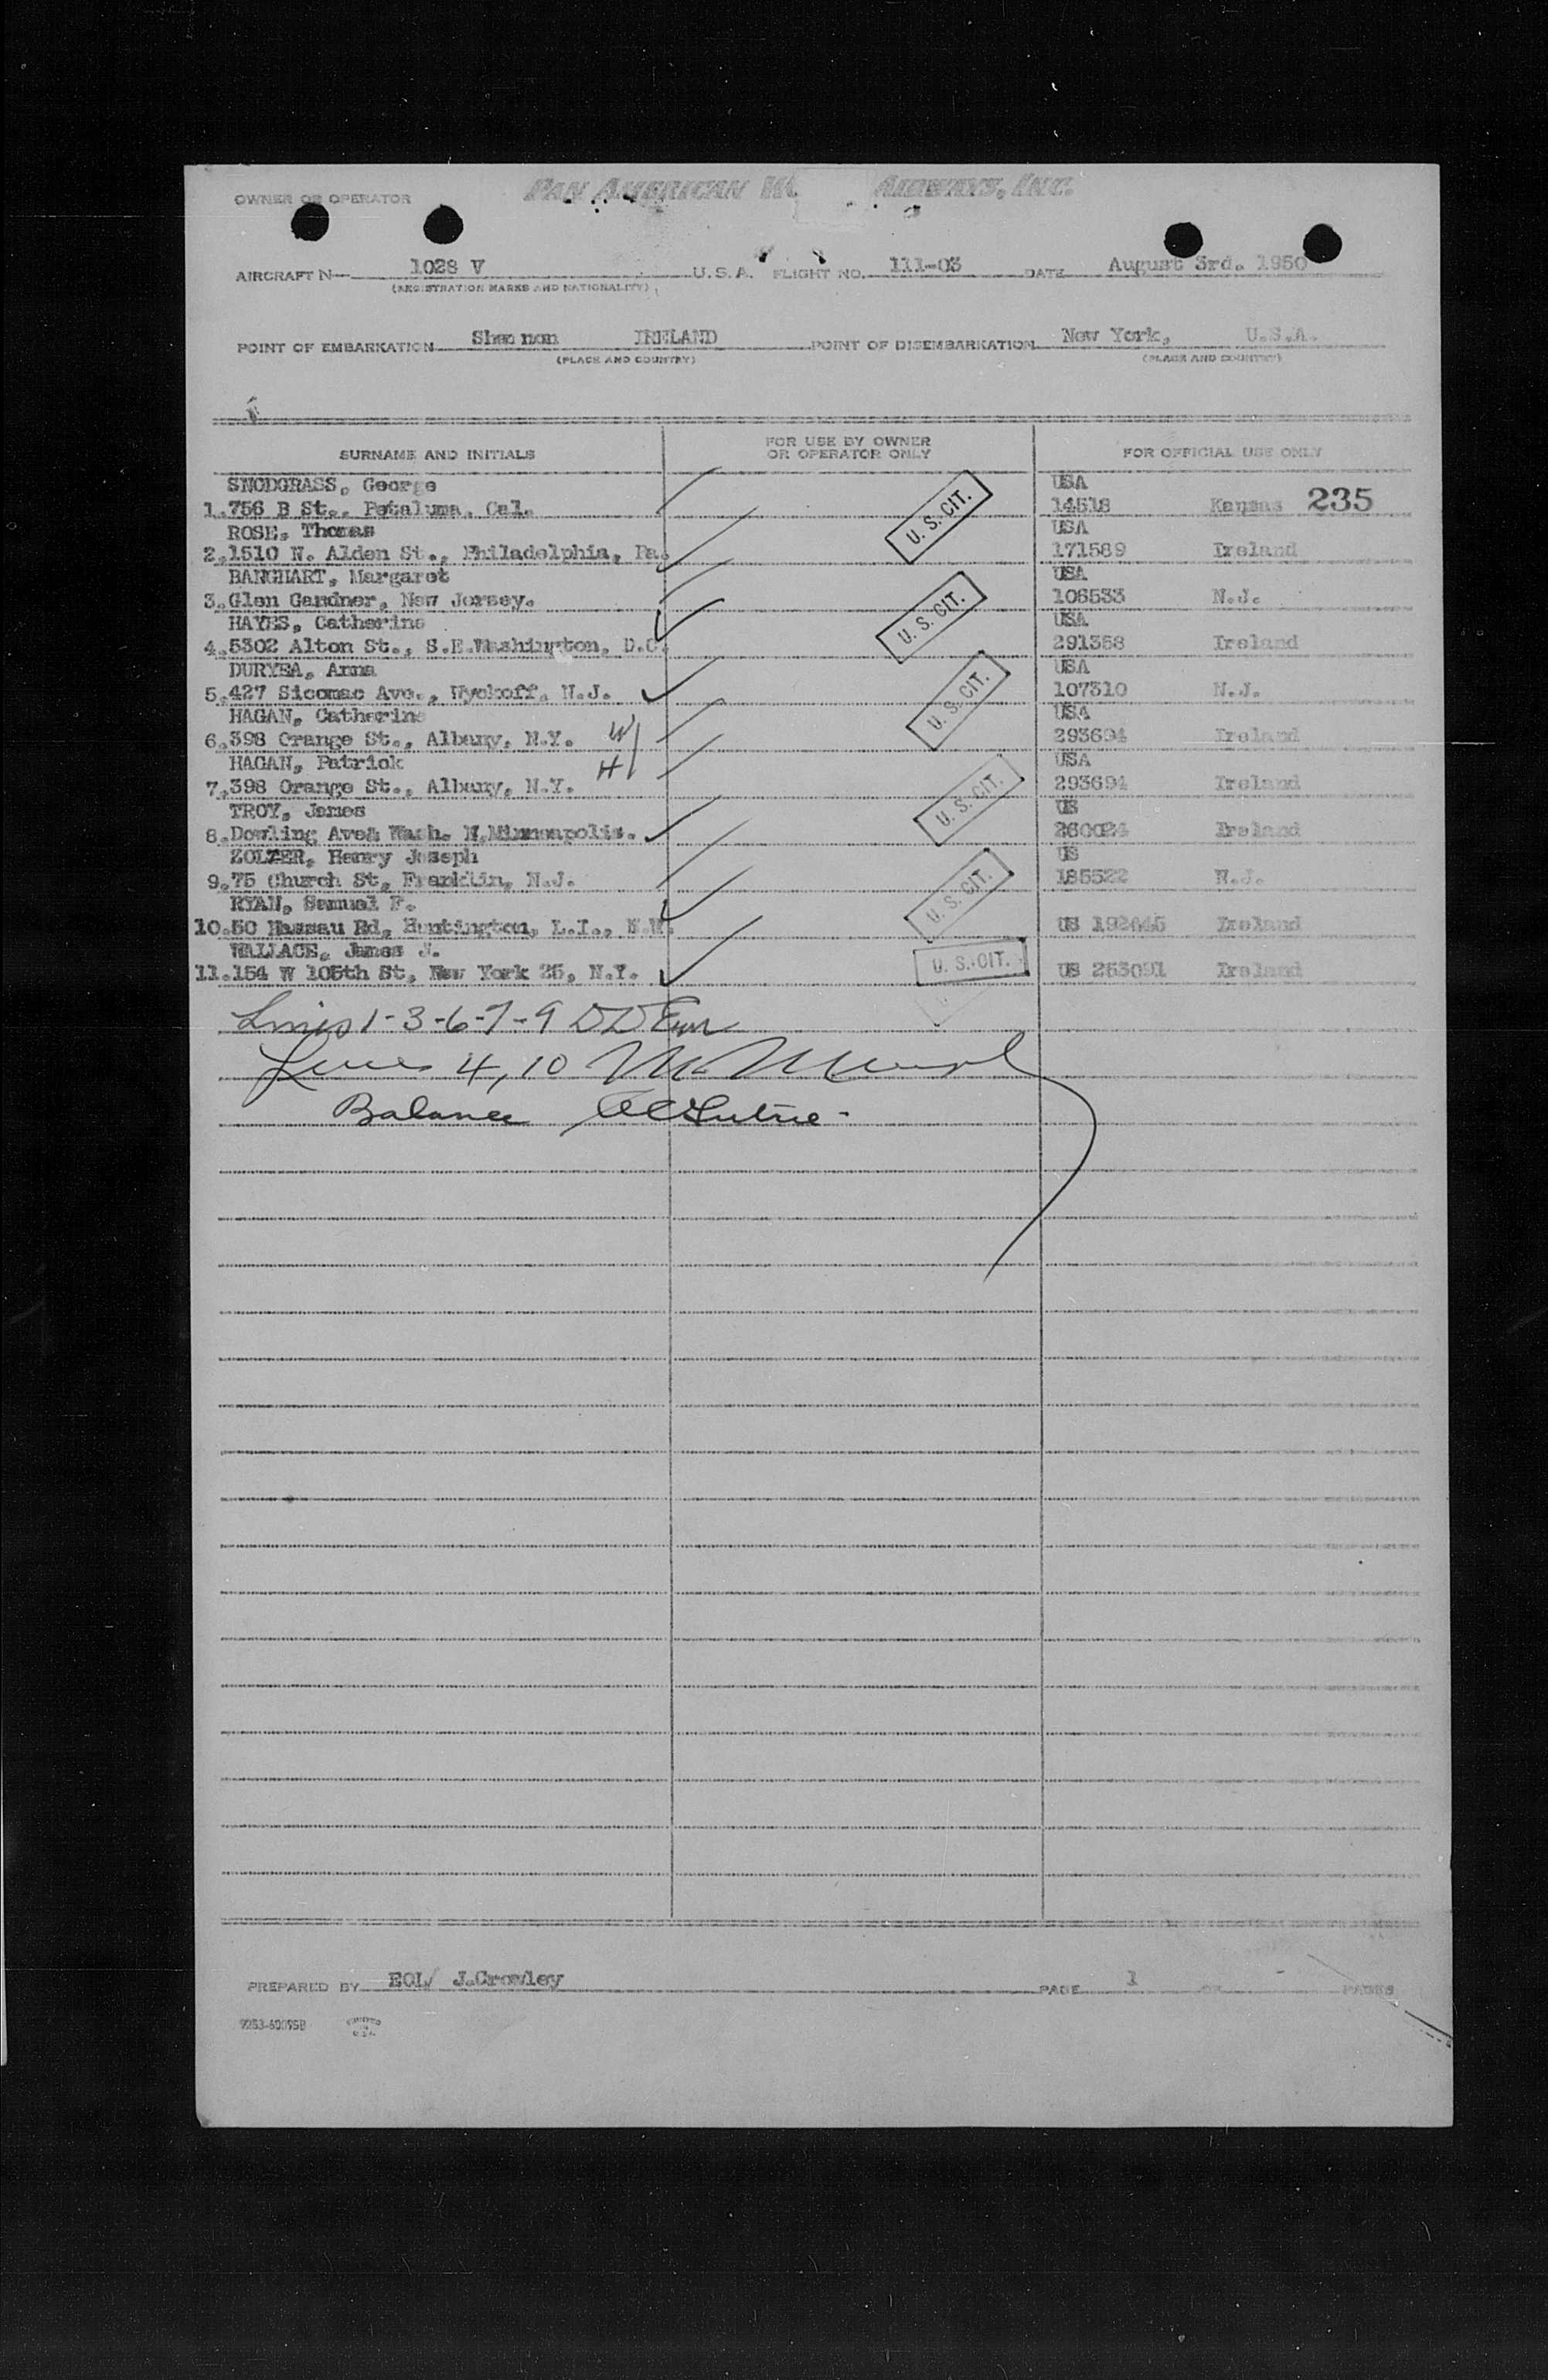 OWNER OR OPERATOR PAN AMERICAN W AIRWAYS, INC.
AIRCRAFT N— 1028 V U.S.A. FLIGHT NO. 111-03 DATE August 3rd. 1950
(REGISTRATION MARKS AND NATIONALITY)
POINT OF EMBARKATION Shannon IRELAND POINT OF DISEMBARKATION New York, U.S.A.
(PLACE AND COUNTRY) (PLACE AND COUNTRY)
SURNAME AND INITIALS FOR USE BY OWNER OR OPERATOR ONLY FOR OFFICIAL USE ONLY
SNODGRASS, George USA
1. 756 B St., Petaluma, Cal. U. S. CIT. 14518 Kansas 235
ROSE, Thomas USA
2. 1510 N. Alden St., Philadelphia, Pa. 171589 Ireland
BANGHART, Margaret USA
3. Glen Gardner, New Jersey. U. S. CIT. 106533 N.J.
HAYES, Catherine USA
4. 5302 Alton St., S.E.Washington, D.C. 291368 Ireland
DURYEA, Anna USA
5. 427 Sicomac Ave., Wyckoff, N.J. U. S. CIT. 107310 N.J.
HAGAN, Catherine USA
6. 398 Orange St., Albany, N.Y. W 293694 Ireland
HAGAN, Patrick H USA
7. 398 Orange St., Albany, N.Y. U. S. CIT. 293694 Ireland
TROY, James US
8. Dowling Ave& Wash. N.Minneapolis. 260024 Ireland
ZOLZER, Henry Joseph US
9. 75 Church St, Franklin, N.J. U. S. CIT. 185522 N.J.
RYAN, Samuel F.
10. 50 Nassau Rd, Huntington, L.I., N.Y. US Ireland
WALLACE, James J.
11. 154 W 105th St, New York 25, N.Y. U. S. CIT. US 253091 Ireland
Lines 1-3-6-7-9 DD
Lines 4, 10
Balance
PREPARED BY EOL/ J.Crowley PAGE 1 OF - PAGES
PRINTED IN U.S.A.